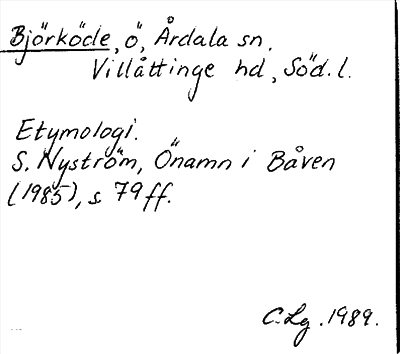 Björköde, ö, Årdala sn.
Villåttinge hd, Söd. l.
Etymologi.
S. Nyström, Önamn i Båven
(1985), s 79 ff.
C. Lg. 1989.